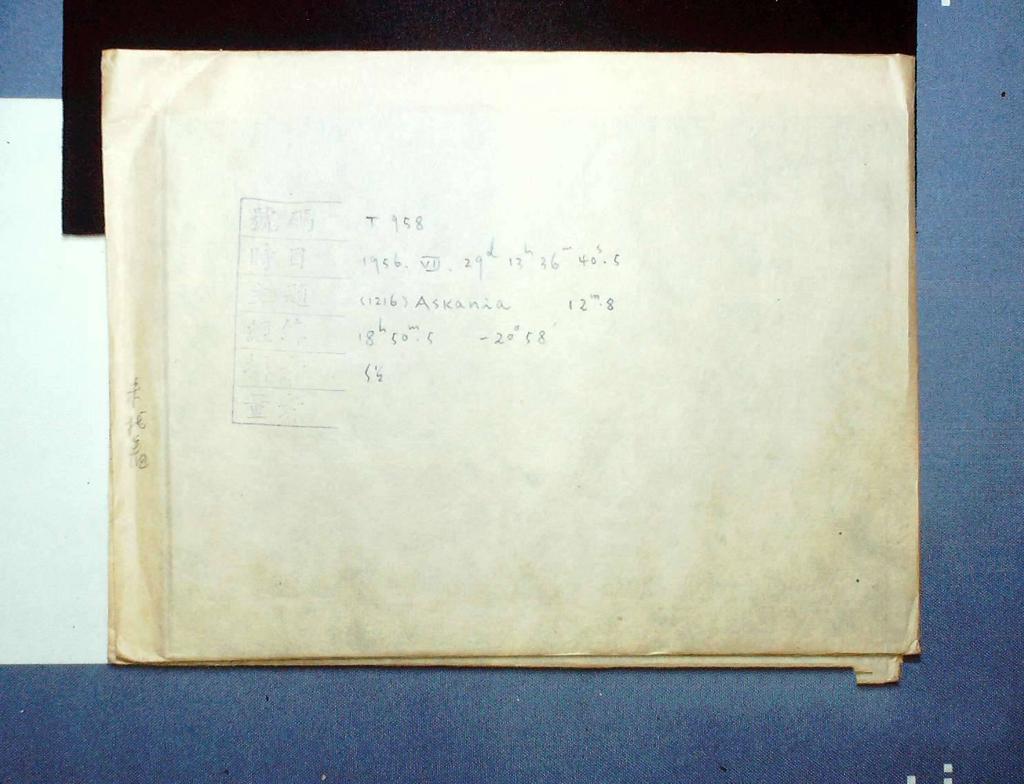 號碼 T 958
時日 1956. VI. 29ᵈ 13ʰ 36ᵐ 40ˢ.5
主題 (1216) Askania 12ᵐ.8
18ʰ 50ᵐ.5 -20°58'
5½